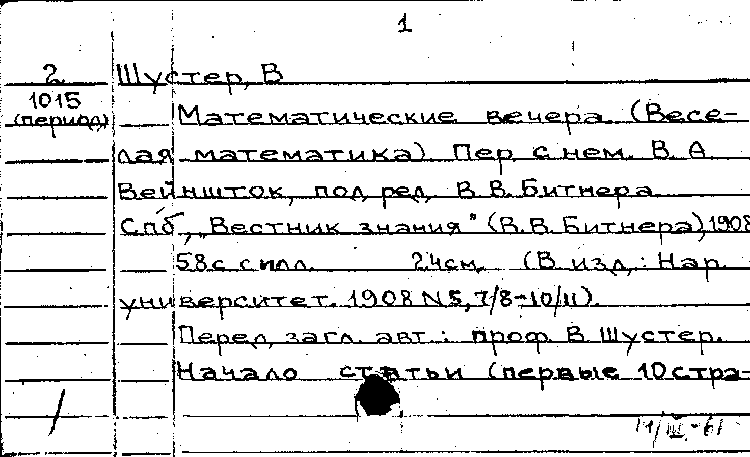 1
2 Шустер, В
1015
(период) Математические вечера. (Весе-
лая математика) Пер. с нем. В. А
Вейншток, под ред. В. В. Битнера
Спб, „Вестник знания" (В. В. Битнера), 1908
58 с с илл. 24 см. (В изд.: Нар.
университет. 1908 N 5, 7/8-10/11).
Перед загл. авт.: проф. В Шустер.
Начало статьи (первые 10 стра-
/III-61